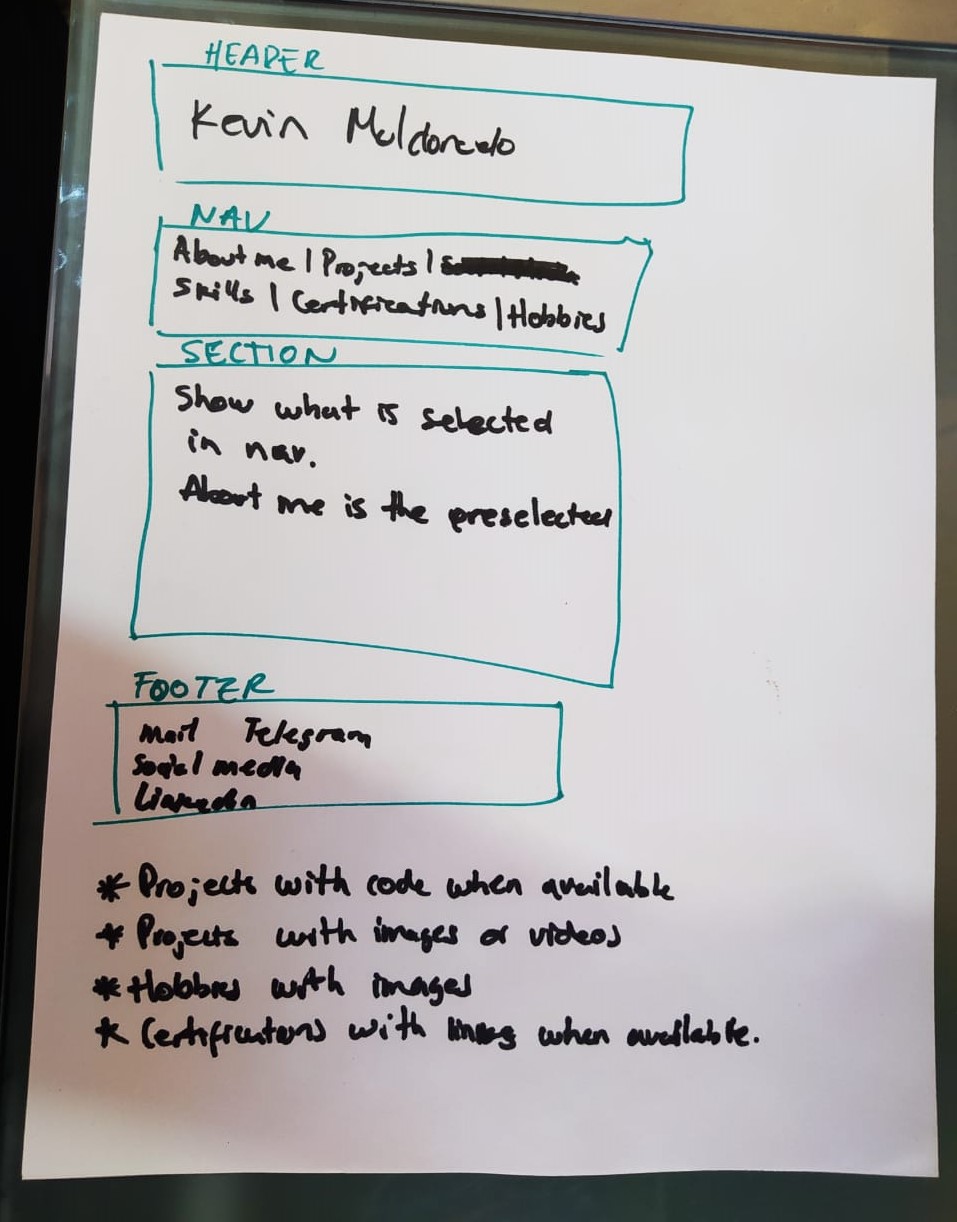 HEADER
Kevin Maldonado
NAV
About me | Projects |
Skills | Certifications | Hobbies
SECTION
Show what is selected
in nav.
About me is the preselected
FOOTER
Mail Telegram
Social media
LinkedIn
* Projects with code when available
* Projects with images or videos
* Hobbies with images
* Certifications with links when available.